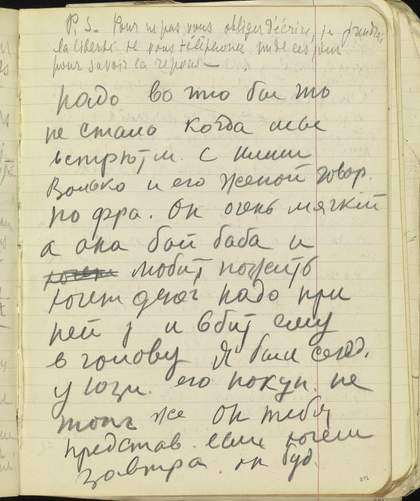 P.S. Pour ne pas vous obliger d'écrire, je prendrai
la liberté de vous téléphoner un de ces jours
pour savoir la réponse —
надо во что бы то
не стало когда мы
встрѣтим с ними
Волько и его женой говор.
по фра. Он очень мягкий
а она бой баба и
любит пожить
хочет денег надо при
ней и вбить ему
в голову Я был сегод.
у его покуп. не
же он тебя
представ. если хочеш
завтра он буд.